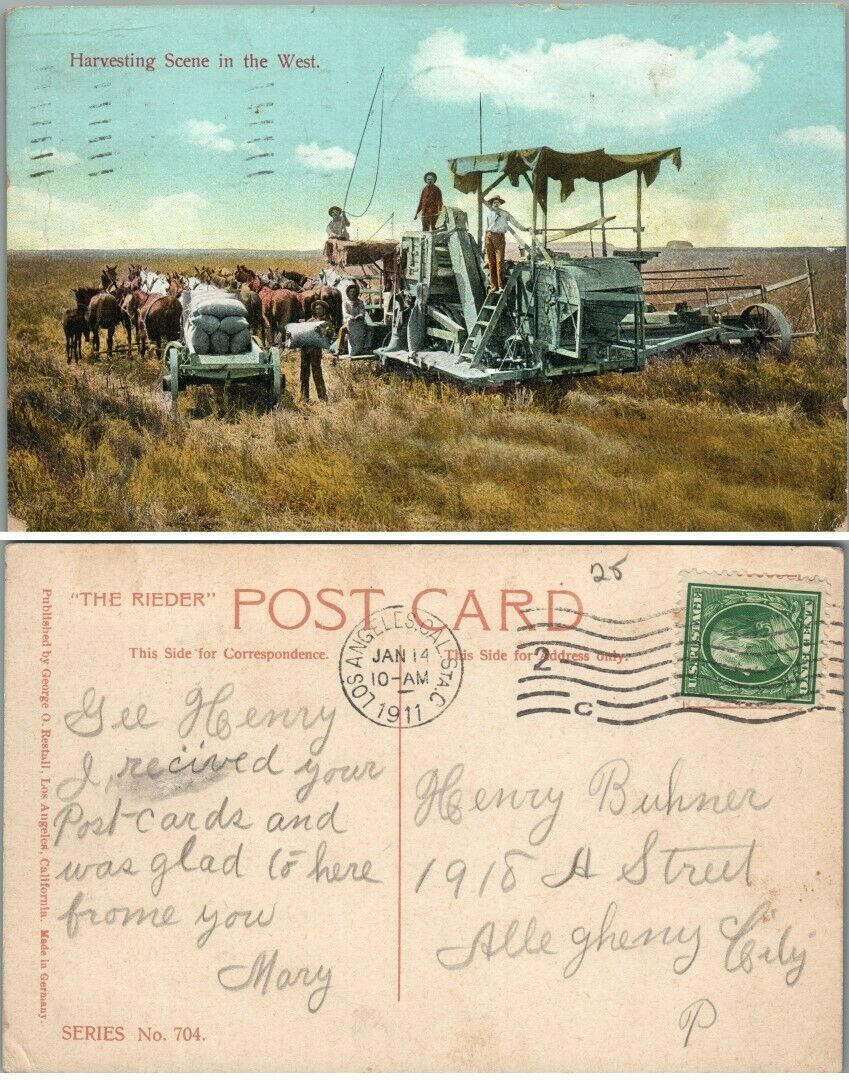 Harvesting Scene in the West.
25
"THE RIEDER" POST CARD
This Side for Correspondence.
This Side for Address only.
LOS ANGELES, CAL. STA. C
JAN 14
10-AM
1911
2
C
U.S. POSTAGE
ONE CENT
Published by George O. Restall, Los Angelos, California. Made in Germany.
Gee Henry
I recived your
Post-cards and
was glad to here
frome you
Mary
Henry Buhner
1918 A Street
Allegheny City
P
SERIES No. 704.